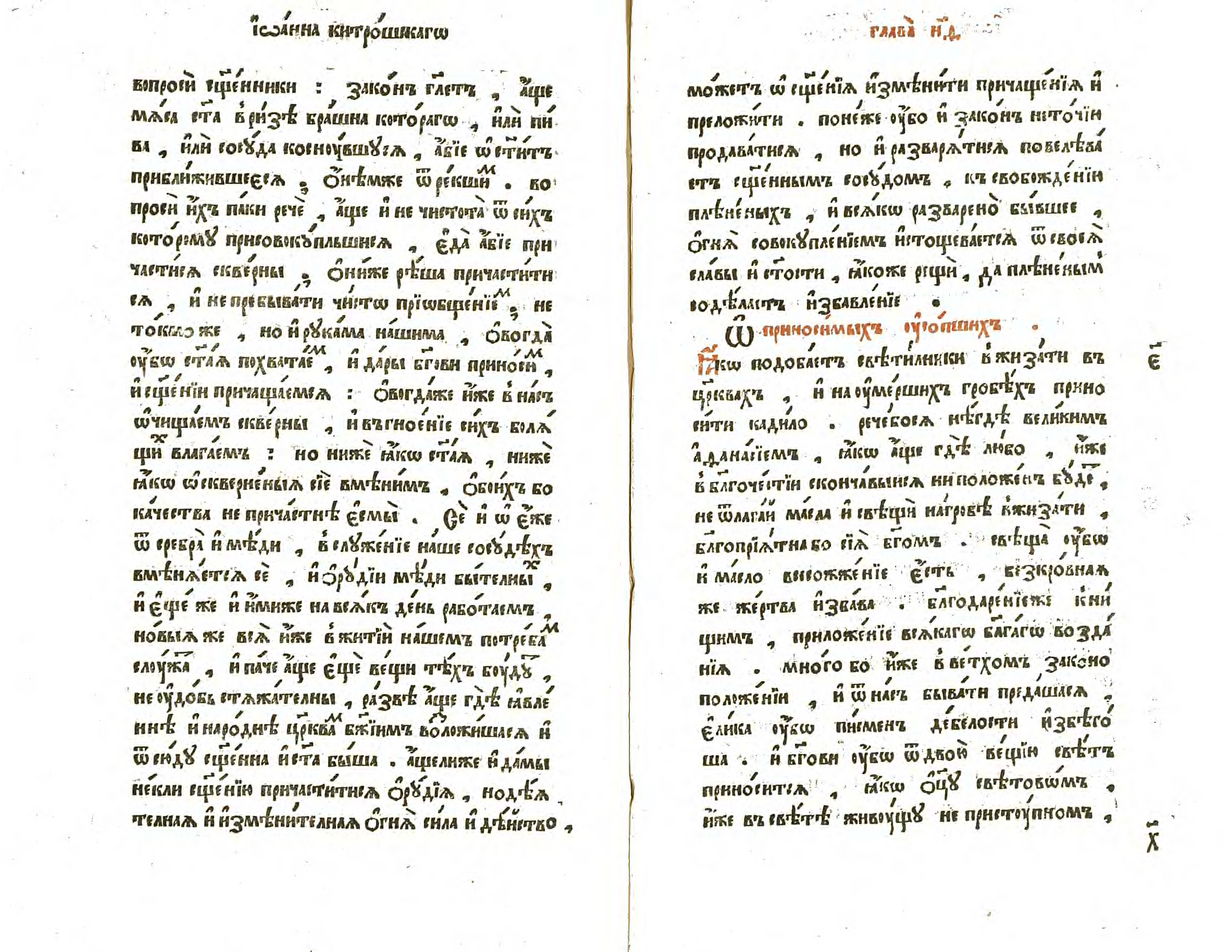 І҆ѡа́нна китро́шскагѡ
вопросѝ сщ҃е́нники : зако́нъ гл҃етъ , а҆́ще
мѧ́са ст҃а в̾ри́зѣ бра́шна кото́рагѡ , и҆лѝ пи
ва , и҆лѝ сосу́да косноу́вшусѧ , а҆́бїе ѡ҆ст҃и́тъ
прибли́жившеесѧ ; ѻ҆нѣ́мже ѿре́кшиⷨ . во
просѝ и҆́хъ па́ки речѐ , а҆́ще и҆ не чистота̀ ѿ си́хъ
кото́рому присовокꙋ́пльшисѧ , є҆да̀ а҆́бїе при
части́сѧ скве́рны ; ѻ҆ни́же рѣ́ша причасти́ти
сѧ , и҆ не пребыва́ти чи́стѡ прїѡбще́нїеⷨ . не
то́кмо же , но и҆ рꙋка́ма на́шима , ѻ҆вогда̀
ᲂу҆́бѡ ст҃а́ѧ похвата́еⷨ , и҆ да́ры бг҃ови прино́сиⷨ ,
и҆ сщ҃е́нїи причаща́емсѧ : ѻ҆вогда́же и҆́же в̾ на́съ
ѡ҆чища́емъ скве́рны , и҆ въ гное́нїе си́хъ болѧ́
щиⷯ влага́емъ : но нижѐ ꙗ҆́кѡ ст҃а́ѧ , нижѐ
ꙗ҆́кѡ ѡ҆скверне́ныѧ сїѐ вмѣни́мъ , ѻ҆бои́хъ бо
ка́чества не прича́стнѣ є҆смы̀ . Сѐ и҆ ѡ҆ є҆́же
ѿ сребра̀ и҆ мѣ́ди , в̾ слꙋже́нїе на́ше сосу́дѣхъ
вмѣнѧ́етсѧ сѐ , и҆ ѻ҆рꙋ́дїи мѣ́ди бытелныⷯ ,
и҆ є҆ще́ же и҆ и҆́миже на всѧ́къ де́нь рабо́таемъ ,
но́выѧ же всѧ̀ и҆́же в̾ житїѝ на́шемъ потре́баⷨ
слоу́жа , и҆ па́че а҆́ще є҆щѐ ве́щи тѣ́хъ бꙋ́дꙋ ,
не ᲂу҆до́бь стѧжа́телны , ра́звѣ а҆́ще гдѣ̀ ꙗ҆́вле
ннѣ и҆ наро́днѣ цр҃кваⷨ бж҃їимъ возложи́шасѧ и҆
ѿсю́дꙋ сщ҃е́нна и҆ ст҃а бы́ша . а҆́щелиже и҆ да́мы
нѣ́кли сщ҃е́нїю причасти́тисѧ ѻ҆рꙋ́дїѧ , но дѣ́ѧ
телнаѧ и҆ и҆змѣни́телнаѧ ѻ҆гнѧ̀ си́ла и҆ дѣ́йство ,
глава̀ н҃д
мо́жетъ ѡ҆ сщ҃е́нїѧ и҆змѣни́ти причаще́нїѧ и҆
преложи́ти . поне́же ᲂу҆́бо и҆ зако́нъ не то́чїю
продава́тисѧ , но и҆ разварѧ́тисѧ повелѣва́
етъ сщ҃е́ннымъ сосу́домъ , къ свобожде́нїю
плѣне́ныхъ , и҆ всѧ́кѡ разваренò бы́вшее ,
ѻ҆гнѧ̀ совокупле́нїемъ и҆стощева́етсѧ ѿ своеѧ̀
сла́вы и҆ ст҃ости , ꙗ҆́коже рещѝ , да плѣне́нымъ
содѣ́лаетъ и҆збавле́нїе .
Ѡ҆ приноси́мыхъ ᲂу҆со́пшихъ .
Ꙗ҆́кѡ подоба́етъ свѣти́лники в̾жиза́ти въ
цр҃квахъ , и҆ на ᲂу҆ме́ршихъ гробѣ́хъ прино
си́ти кади́ло . рече́босѧ нѣ́гдѣ вели́кимъ
а҆ѳана́сїемъ , ꙗ҆́кѡ а҆́ще гдѣ̀ ли́бо , и҆́же
в̾ бл҃гоче́стїи сконча́выисѧ ни положе́нъ бꙋ́де ,
не ѿлага́й ма́сла и҆ свѣщѝ на гро́бѣ в̾жиза́ти ,
бл҃гопрїѧ́тна бо сїѧ̀ бг҃омъ . свѣща̀ ᲂу҆́бѡ
и҆ ма́сло всесожже́нїе є҆́сть , безкро́внаѧ
же же́ртва и҆зва́ва . бл҃годаре́нїе же к̾ ни́
щимъ , приложе́нїе всѧ́кагѡ бл҃га́гѡ возда́
нїѧ . мно́го бо и҆́же в̾ ве́тхомъ зако́но
положе́нїи , и҆ ѿ на́съ быва́ти преда́шасѧ ,
є҆ли́ка ᲂу҆́бѡ пи́сменъ де́белости и҆збѣ́го
ша . и҆ бг҃ови ᲂу҆́бѡ ѿ двою̀ ве́щїю свѣ́тъ
прино́ситсѧ , ꙗ҆́кѡ ѻ҆ц҃у свѣ́товѡмъ ,
и҆́же въ свѣ́тѣ живꙋ́щꙋ не пристꙋ́пномъ ,
є҃
х҃